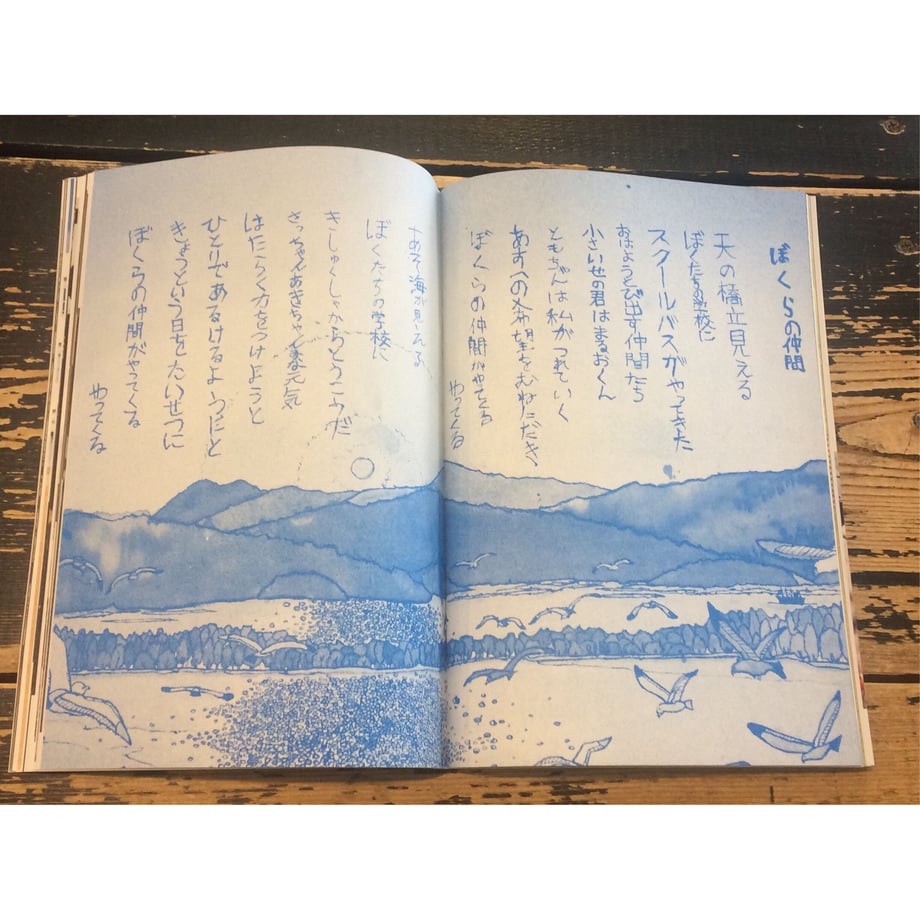 ぼくらの仲間
天の橋立見える
ぼくたちの学校に
スクールバスがやってきた
おはようとび出す仲間たち
小さいせの君はまなおくん
ともちゃんは私がつれていく
あすへの希望をむねにだき
ぼくらの仲間がやってくる
やってくる
あそ海が見える
ぼくたちの学校に
きしゅくしゃからとうこうだ
さっちゃんあきちゃん元気
はたらく力をつけようと
ひとりであるけるようにと
きょうという日をたいせつに
ぼくらの仲間がやってくる
やってくる